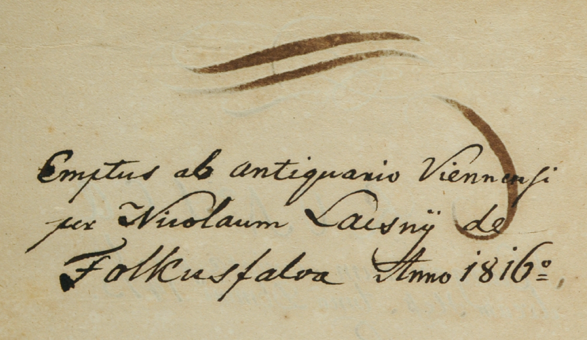 Emptus ab antiquario Viennensi
per Nicolaum Lacsnÿ de
Folkusfalva Anno 1816º